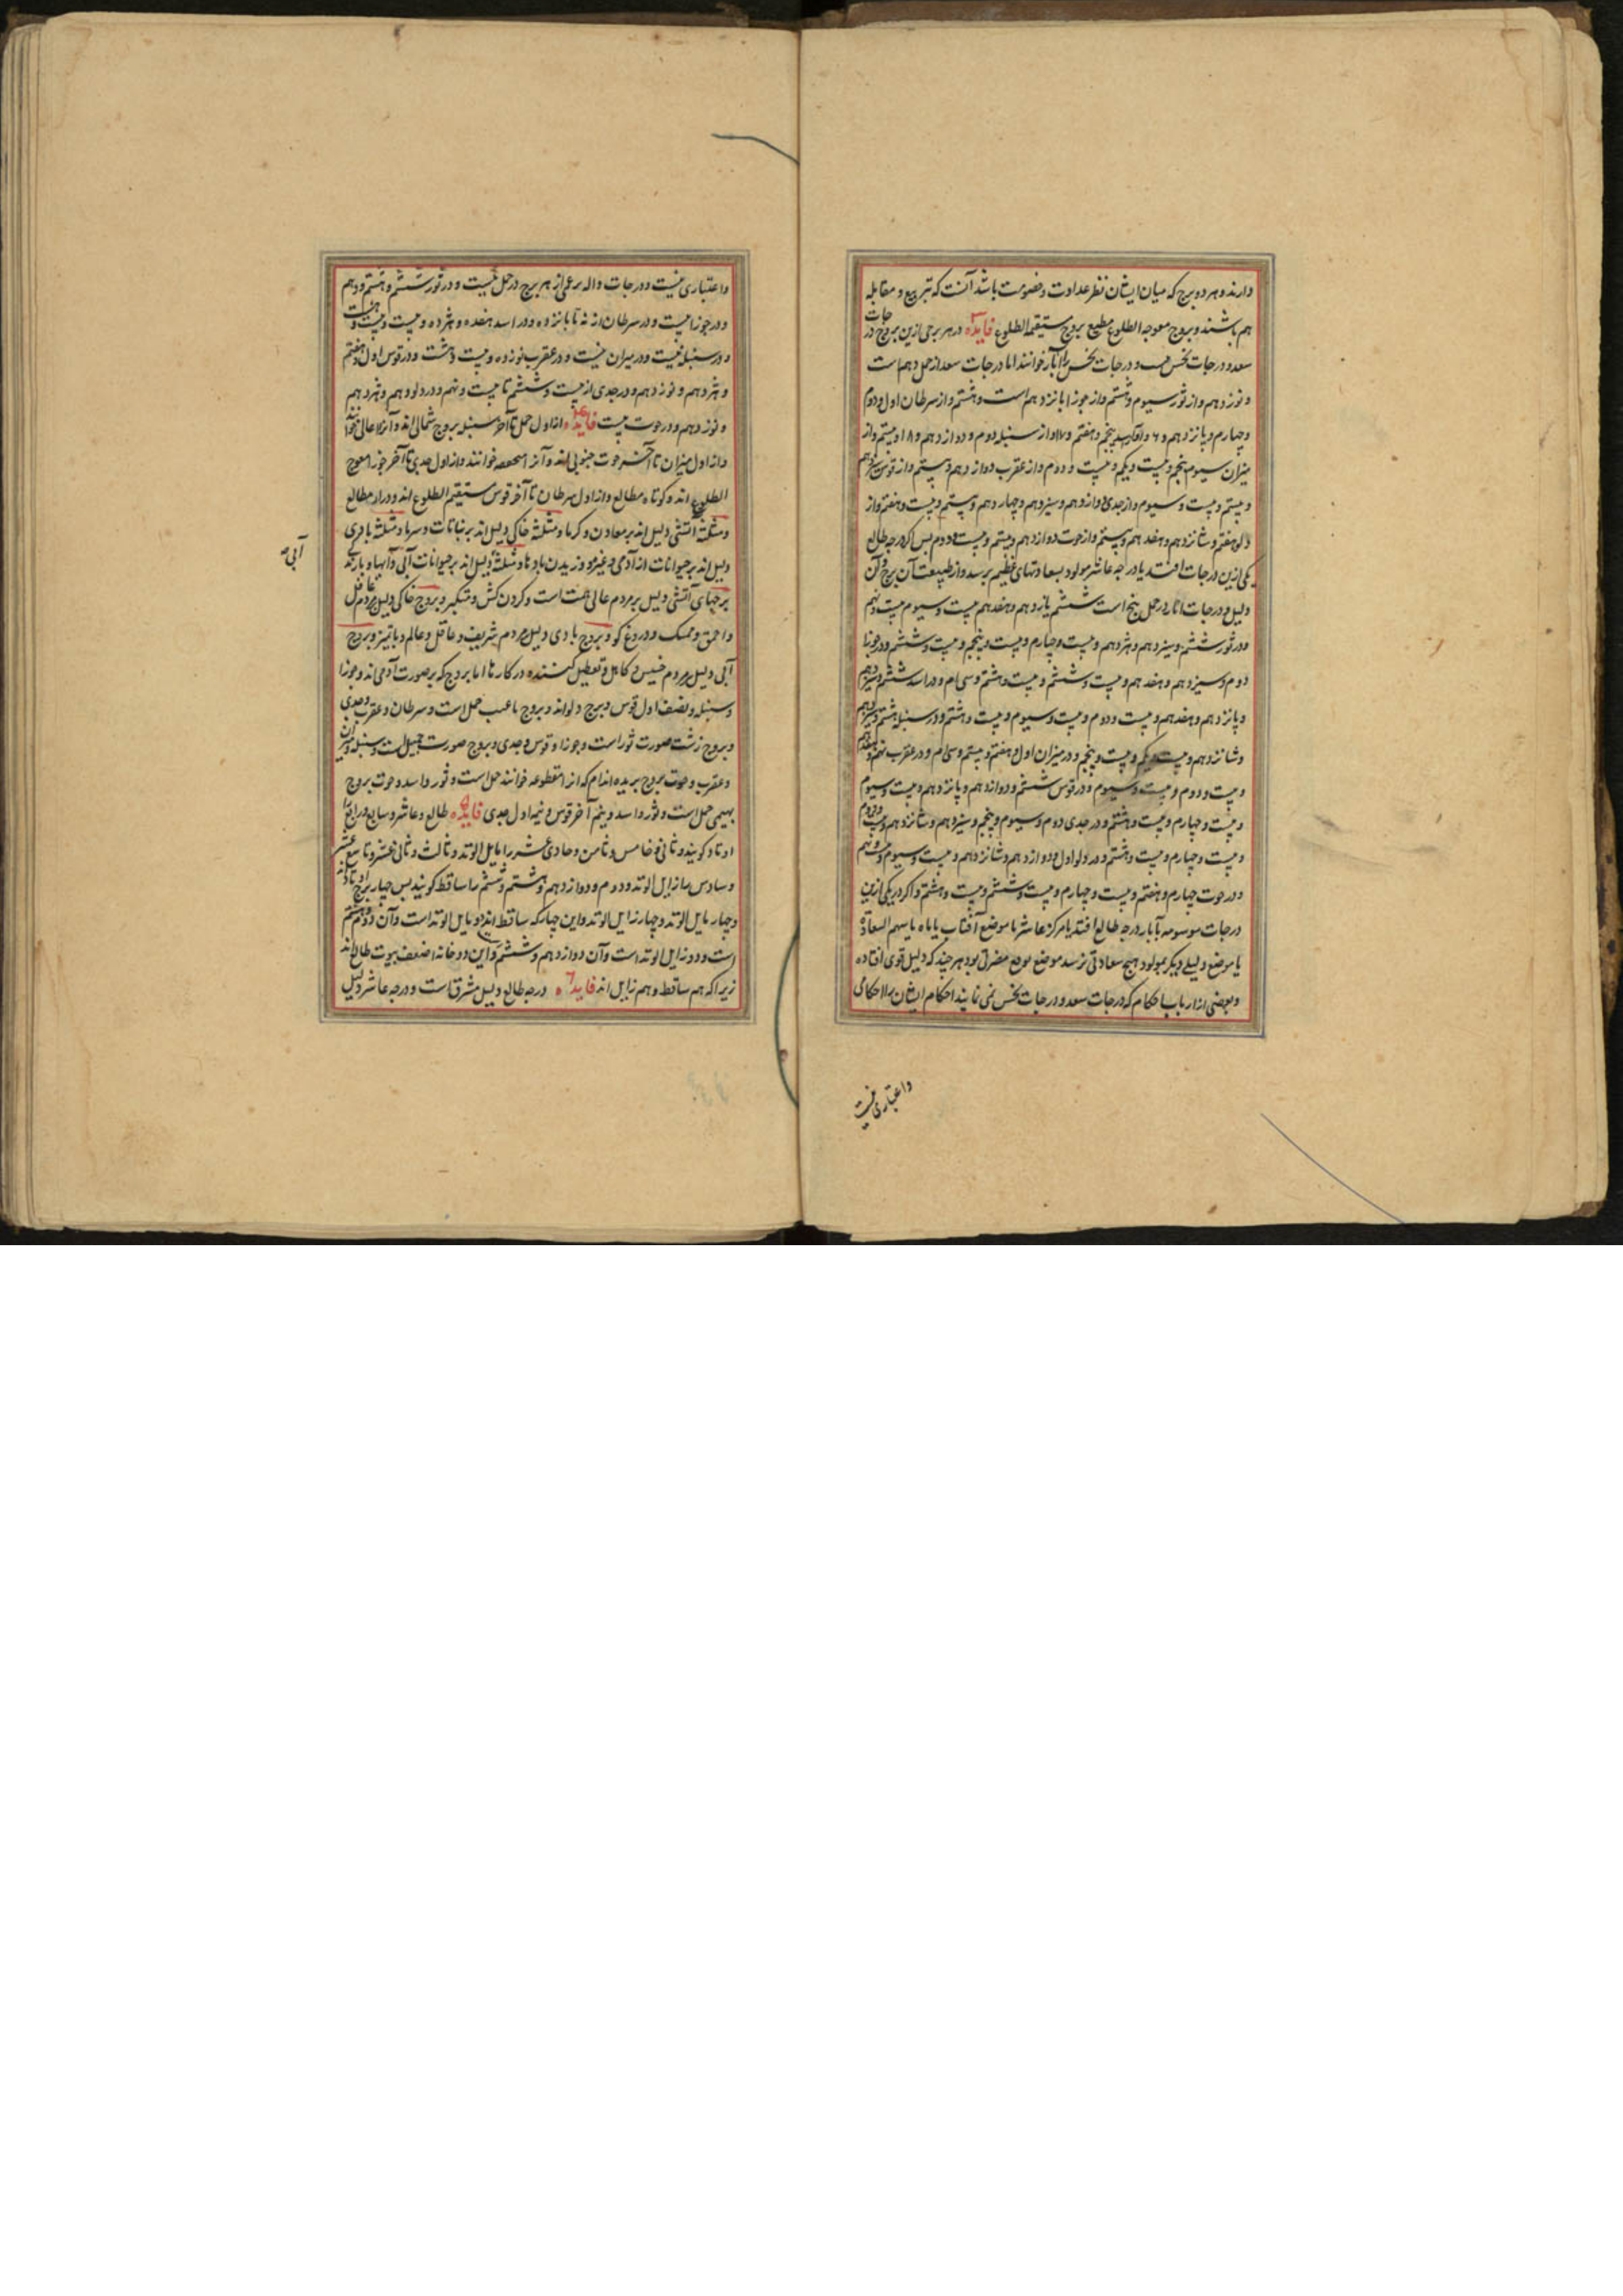 دارند و هر دو برج که میان ایشان نظر عداوت و خصومت باشد آنست که تربیع و مقابله
هم باشند و بروج معوجه الطلوع مطیع بروج مستقیمه الطلوع فایده ۳ در هر برجی ازین بروج درجات
سعد و درجات نحس و درجات نحس را آبار خوانند اما درجات سعد از حمل دهم است
و نوزدهم و از ثور سیوم و هشتم و از جوزا یازدهم است و هشتم و از سرطان اول و دوم
و چهارم و پانزدهم و ۶ و از اسد پنجم و هفتم و ۱۷ و از سنبله دوم و دوازدهم و ۱۸ و بیستم و از
میزان سیوم پنجم و بیست و یکم و بیست و دوم و از عقرب دوازدهم و بیستم و از قوس
و بیستم و بیست و سیوم و از جدی دوازدهم و سیزدهم و چهاردهم و بیستم و بیست و هفتم و از
دلو هفتم و شانزدهم و هفدهم و بیستم و از حوت دوازدهم و بیستم و بیست و دوم پس اگر درجه طالع
یکی ازین درجات افتد یا درجه عاشر مولود بسعادتهای عظیم برسد و از طبیعت آن برج و آن
دلیل و درجات آبار در حمل پنج است ششم یازدهم و هفدهم بیست و سیوم بیست و نهم
و در ثور ششم و سیزدهم و هژدهم و بیست و چهارم و بیست و پنجم و بیست و ششم و در جوزا
دوم و سیزدهم و هفدهم و بیست و ششم و بیست و هشتم و سی ام و در اسد ششم و سیزدهم
و پانزدهم و هفدهم و بیست و دوم و بیست و سیوم و بیست و هشتم و در سنبله هشتم و سیزدهم
و شانزدهم و بیست و یکم و بیست و پنجم و در میزان اول و هفتم و بیستم و سی ام و در عقرب نهم و هفدهم
و بیست و دوم و بیست و سیوم و در قوس ششم و دوازدهم و پانزدهم و بیست و سیوم
و بیست و چهارم و بیست و هشتم و در جدی دوم و سیوم و پنجم و سیزدهم و شانزدهم و بیست و دوم
و بیست و چهارم و بیست و هشتم و در دلو اول و دوازدهم و شانزدهم و بیست و سیوم و بیست و نهم
و در حوت چهارم و هفتم و بیست و چهارم و بیست و ششم و بیست و هشتم و اگر در یکی ازین
درجات موسومه بآبار درجه طالع افتد یا مرکز عاشر یا موضع آفتاب یا ماه یا سهم السعاده
یا موضع دلیلی دیگر مولود هیچ سعادتی نرسد موضع مضرتی بود هر چند که دلیل قوی افتاده
و بعضی از ارباب احکام که درجات سعد و درجات نحس نمی نمایند احکام ایشان را احکامی
واعتباری نیست
واعتباری نیست و درجات از هر برج در حمل نیست و در ثور ششم و هشتم و دهم
و در جوزا نیست و در سرطان از نه تا پانزده و در اسد هفده و هژده و بیست و
و در سنبله نیست و در میزان نیست و در عقرب نوزده و بیست و هشت و در قوس اول و هفتم
و هژدهم و نوزدهم و در جدی از بیست و ششم تا بیست و نهم و در دلو دهم و هژدهم
و نوزدهم و در حوت نیست فایده ۴ از اول حمل تا آخر سنبله بروج شمالی اند و آنرا عالی خوانند
و از اول میزان تا آخر حوت جنوبی اند و آنرا منخفضه خوانند و از اول جدی تا آخر جوزا معوج
الطلوع اند و کوتاه مطالع و از اول سرطان تا آخر قوس مستقیم الطلوع اند و دراز مطالع
و مثلثه آتشی دلیل اند بر معادن و گرما و مثلثه خاکی دلیل اند بر نباتات و سرما و مثلثه بادی
دلیل اند بر حیوانات از آدمی و غیره و وزیدن بادها و مثلثه دلیل اند بر حیوانات آبی و آبها و بارندگی
آبی
برجهای آتشی دلیل بر مردم عالی همت است و گردن کش و متکبر و بروج خاکی دلیل مردم غافل
و احمق و ممسک و دروغ گو و بروج بادی دلیل مردم شریف و عاقل و عالم و با تمیز و بروج
آبی دلیل مردم خسیس و کاهل و تعطیل کننده در کارها اما بروج که بر صورت آدمی اند و جوزا
و سنبله و نصف اول قوس و برج دلو اند و بروج با عیب حمل است و سرطان و عقرب و جدی
و بروج زشت صورت ثور است و جوزا و قوس و جدی و بروج صورت جمیل است و سنبله و میزان
و عقرب و حوت بروج بریده اندام که آنرا مقطوعه خوانند حمل است و ثور و اسد و حوت بروج
بهیمی حمل است و ثور و اسد و نیم آخر قوس و نیمه اول جدی فایده ۵ طالع و عاشر و سابع و رابع را
اوتاد گویند و ثانی و خامس و ثامن و حادی عشر را مایل الوتد و ثالث و ثانی عشر و تاسع
و سادس را زایل الوتد و دوم و دوازدهم و هشتم و ششم را ساقط گویند پس چهار برج اوتاد اند
و چهار مایل الوتد و چهار زایل الوتد و این چهار که ساقط اند دو مایل الوتد است و آن دوم و هشتم
است و دو زایل الوتد است و آن دوازدهم و ششم و این دو خانه اضعف بیوت طالع اند
زیرا که هم ساقط و هم زایل اند فایده ۶ درجه طالع دلیل مشرق است و درجه عاشر دلیل